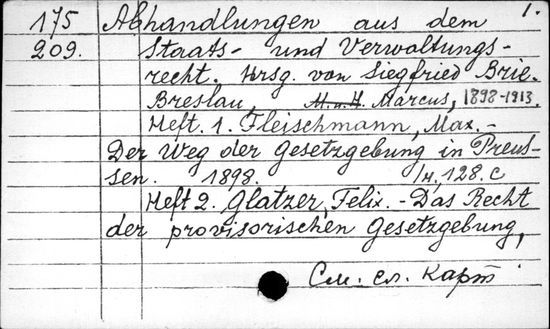 1.
175 Abhandlungen aus dem
209. Staats- und Verwaltungs-
recht. Hrsg. von Siegfried Brie.
Breslau, M. u. H. Marcus, 1898-1913.
Heft. 1. Fleischmann, Max. -
Der Weg der Gesetzgebung in Preus-
sen. 1898. 128. c
Heft 2. Glatzer, Felix. - Das Recht
der provisorischen Gesetzgebung,
См. сл. карт